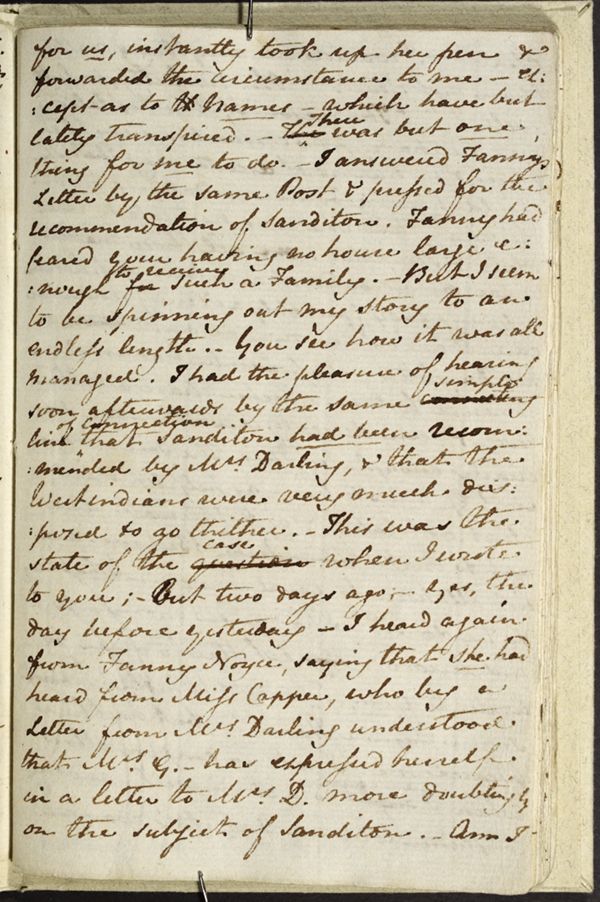 for us, instantly took up her pen &
forwarded the circumstance to me – Ex:
:cept as to Names – which have but
lately transpired. – There was but one
thing for me to do. – I answered Fanny's
Letter by the same Post & pressed for the
recommendation of Sanditon. Fanny had
feared your having no house large e:
:nough to receive such a Family. – But I seem
to be spinning out my story to an
endless length. – You see how it was all
managed. I had the pleasure of hearing
soon afterwards by the same simple
line of connection that Sanditon had been recom:
:mended by Mrs. Darling, & that the
Westindians were very much dis:
:posed to go thither. – This was the
state of the case when I wrote
to you; – But two days ago; – yes, the
day before yesterday – I heard again
from Fanny Noyce, saying that she had
heard from Miss Capper, who by a
Letter from Mrs. Darling understood
that Mrs. G. – has expressed herself
in a letter to Mrs. D. more doubtingly
on the subject of Sanditon. – Am I